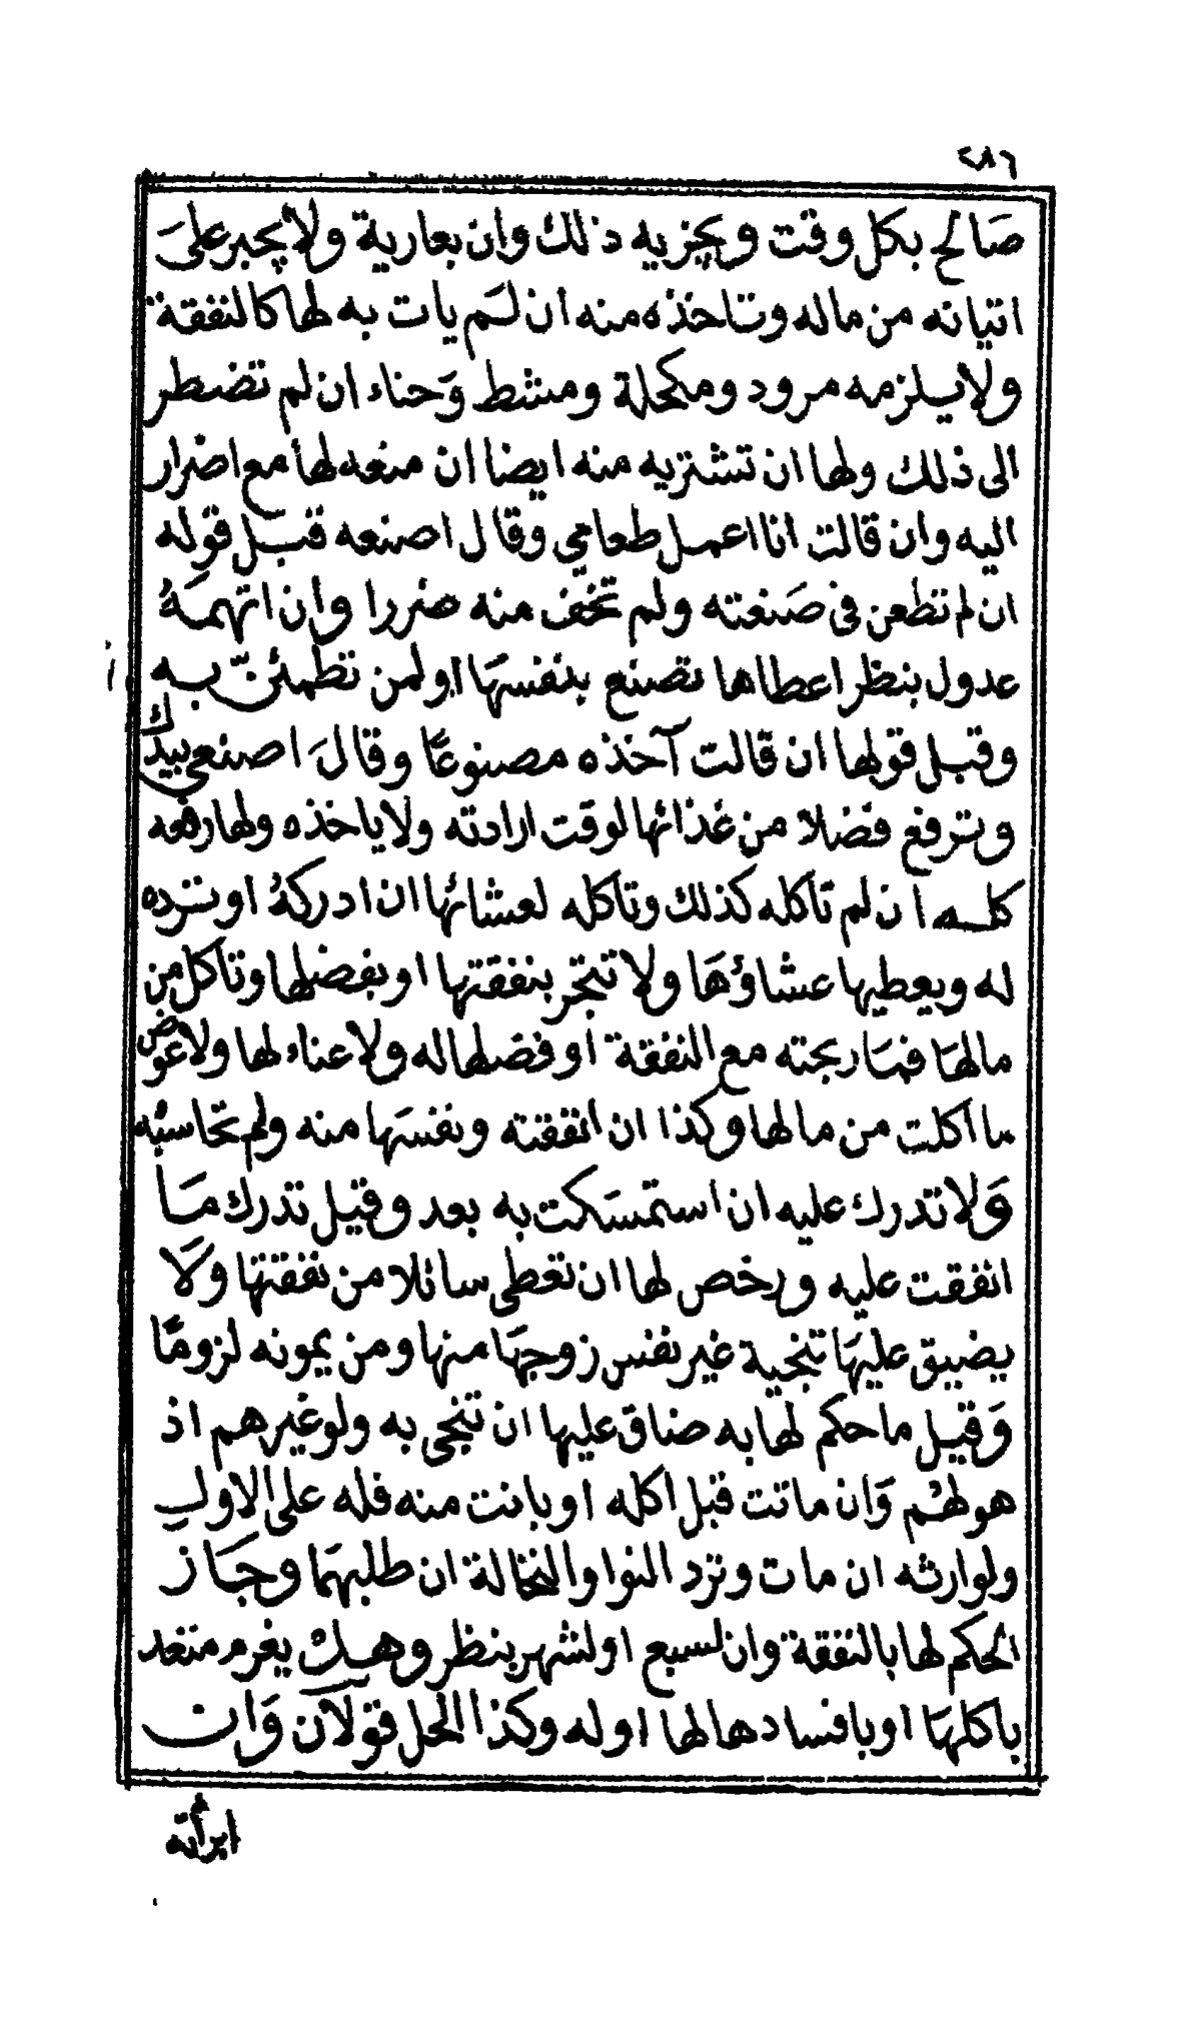 ٢٨٦
صَالح بكل وقت ويجزيه ذلك وان بعارية ولا يجبر علىَ
اتيانه من ماله وتاخذه منه ان لَم يات به لها كالنفقة
ولا يلزمه مرود ومكحلة ومشط وَحناء ان لم تضطر
الى ذلك ولها ان تشتريه منه ايضا ان منعه لها مع اضرار
اليه وان قالت انا اعمل طعامي وقال اصنعه قبل قوله
ان لم تطعن فى صَنعته ولم تخف منه ضررا وان اتهمَهُ
عدول بنظر اعطاها تصنع بنفسهَا او لمن تطمئنّ به
وقبل قولها ان قالت آخذه مصنوعًا وقالَ اصنعي بيدك
وترفع فضلا من غذائها لوقت ارادته ولا ياخذه ولها رفعه
كله ان لم تاكله كذلك وتاكله لعشائها ان ادركهُ او ترده
له ويعطيها عشاؤهَا ولا تتجر بنفقتها او بفضلها وتاكل من
مالهَا فمَا ربحته مع النفقة او فضلها له ولا عناء لها ولا عوض
ما اكلت من مالها وكذا ان انفقته ونفسَها منه ولم تحاسبْه
وَلا تدرك عليه ان استمسَكت به بعد وقيل تدرك مَا
انفقت عليه ورخص لها ان تعطى سائلا من نفقتها ولَا
يضيق عليهَا تنجية غير نفس زوجهَا منها ومن يمونه لزومًا
وَقيل ما حكم لها به ضاق عليها ان تنجى به ولو غيرهم اذ
هو لهُم وَان ماتت قبل اكله او بانت منه فله على الاول
ولوارثه ان مات وترد النوا والنخالة ان طلبهَما وجَاز
الحكم لها بالنفقة وان لسبع او لشهر بنظر وهل يغرم متعد
باكلهَا او بافسادها لها او له وكذا الحل قولان وَان
ابرأته